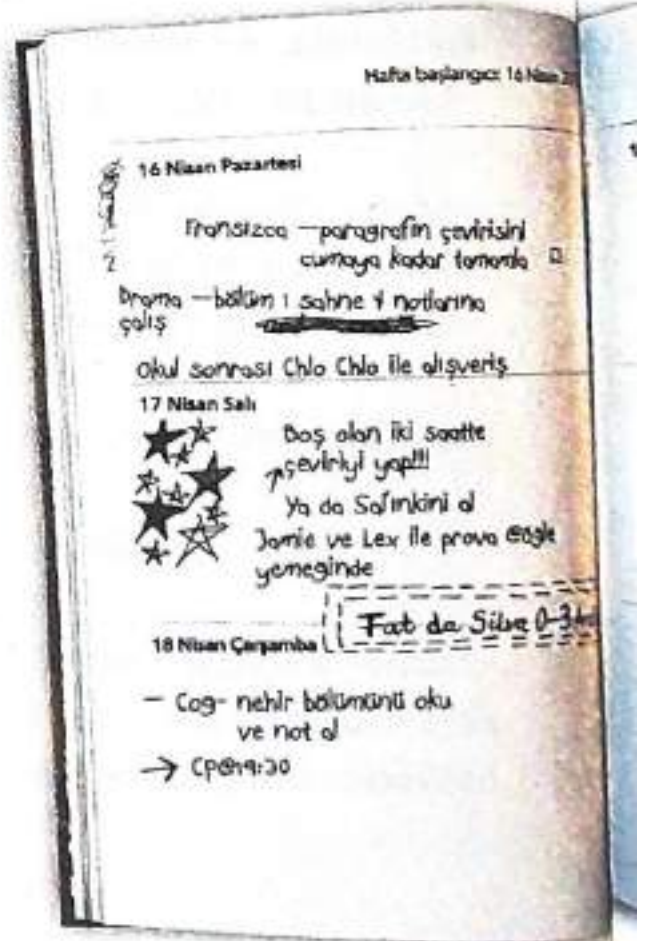 Hafta başlangıcı: 16 Nisan
16 Nisan Pazartesi
Fransızca — paragrafın çevirisini
cumaya kadar tamamla
Drama — bölüm 1 sahne 4 notlarına
çalış
Okul sonrası Chlo Chlo ile alışveriş
17 Nisan Salı
Boş olan iki saatte
çeviriyi yap!!!
Ya da Sal'ınkini al
Jamie ve Lex ile prova @öğle
yemeginde
Fat da Silva 0-3
18 Nisan Çarşamba
- Cog- nehir bölümünü oku
ve not al
→ CP@19:30